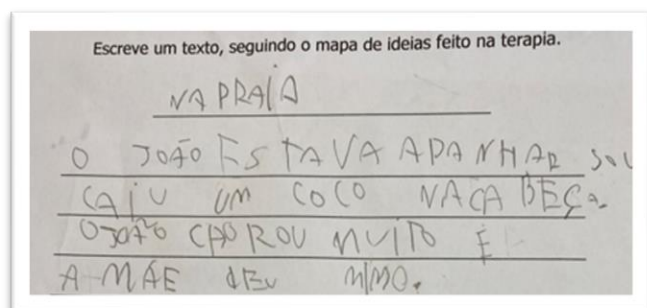 Escreve um texto, seguindo o mapa de ideias feito na terapia.
NA PRAIA
O JOÃO ESTAVA APANHAR SOL
CAIU UM COCO NACABEÇa
OJOÃO CHOROU MUITO E
A MÃE dEu MIMO.